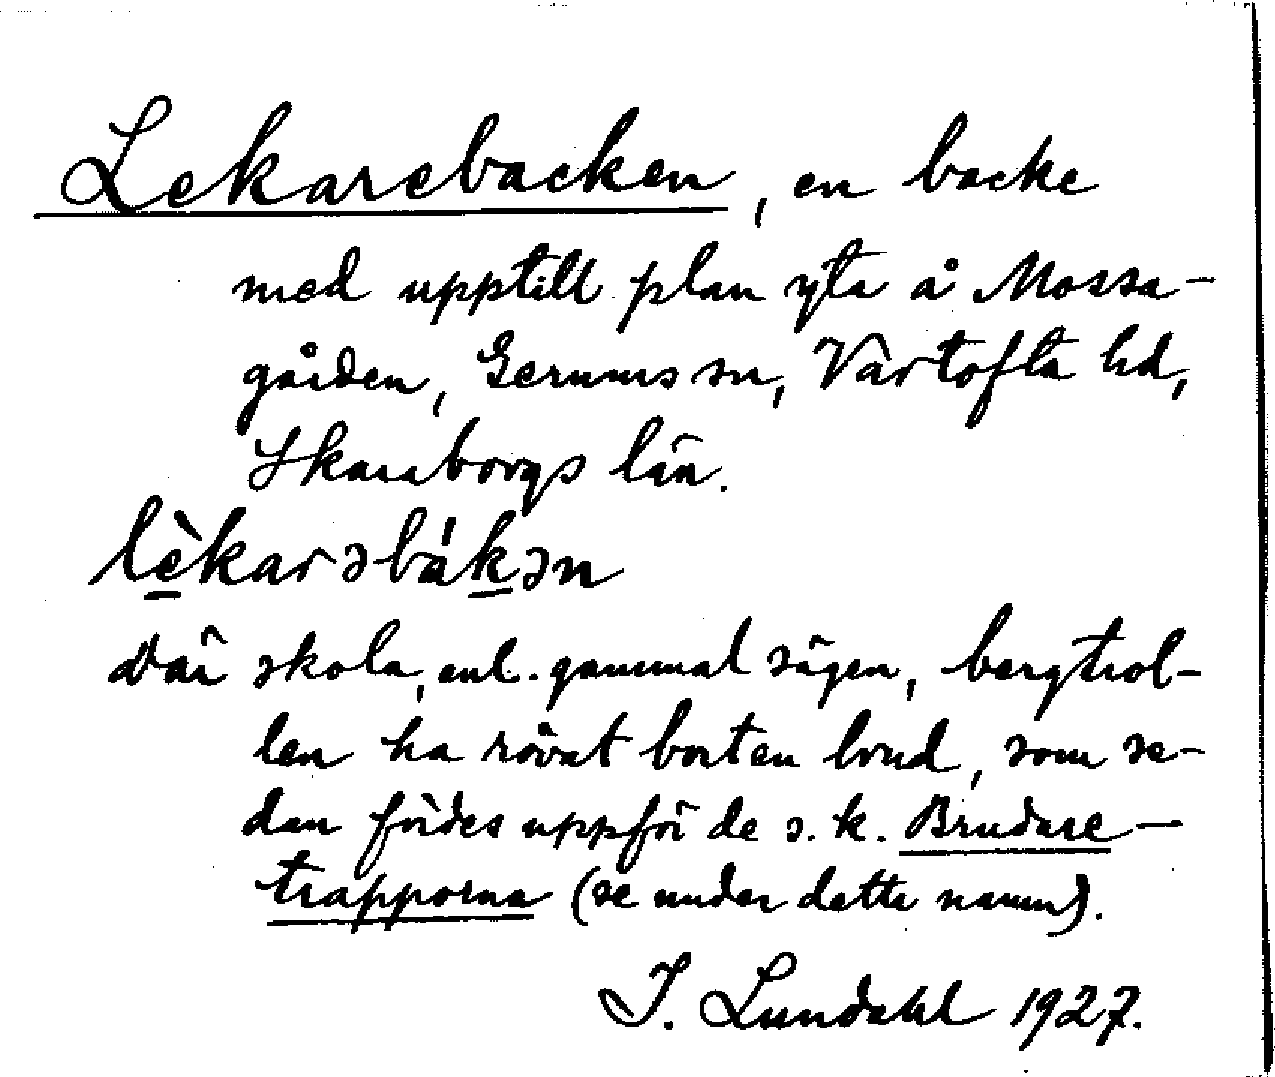 Lekarebacken, en backe
med upptill plan yta å Mossa-
gården, Gerums sn, Vartofta hd,
Skaraborgs län.
lèkarəbákən
där skola, enl. gammal sägen, bergtrol-
len ha rövat bort en brud, som se-
dan fördes uppför de s.k. Brudare-
trapporna (se under detta namn).
I. Lundahl 1927.